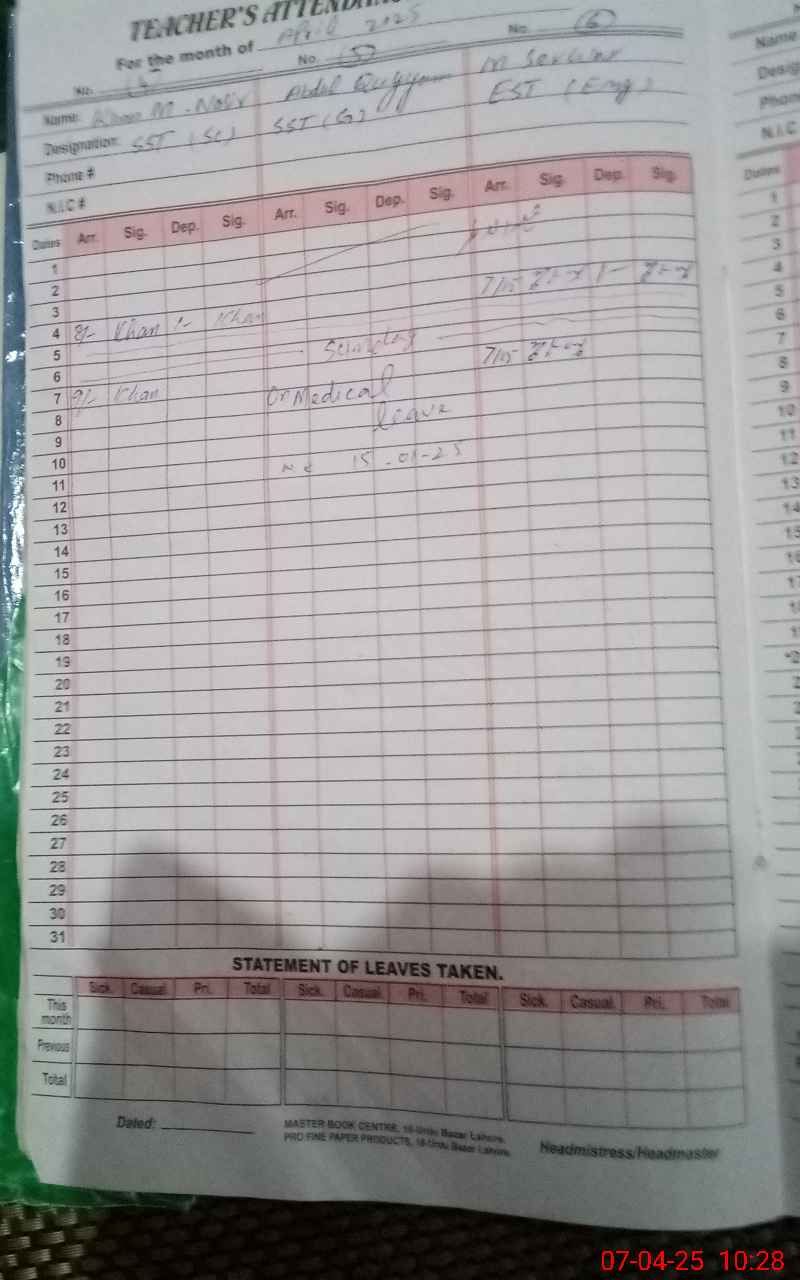 TEACHER'S ATTENDAN
For the month of April 2025
No. (4) No. (5) No. (6)
Name: Khan M. Nasir Abdul Qayyum M Serwar
Designation: SST (Sc) SST (G) EST (Eng)
Phone #
N.I.C #
Dates Arr. Sig. Dep. Sig. Arr. Sig. Dep. Sig. Arr. Sig. Dep. Sig.
1
2
3
4 8/- Khan 1- Khan 7/45 1-
5
6 Sunday
7 8/- Khan On Medical 7/45
8 leave
9
10 15-01-25
11
12
13
14
15
16
17
18
19
20
21
22
23
24
25
26
27
28
29
30
31
STATEMENT OF LEAVES TAKEN.
Sick. Casual. Pri. Total Sick. Casual. Pri. Total Sick. Casual. Pri. Total
This month
Previous
Total
Dated:
MASTER BOOK CENTRE, 16-Urdu Bazar Lahore.
PRO FINE PAPER PRODUCTS, 16-Urdu Bazar Lahore.
Headmistress/Headmaster
Name
Desig
Phon
N.I.C
Dates
1
2
3
4
5
6
7
8
9
10
11
12
13
14
15
16
07-04-25 10:28